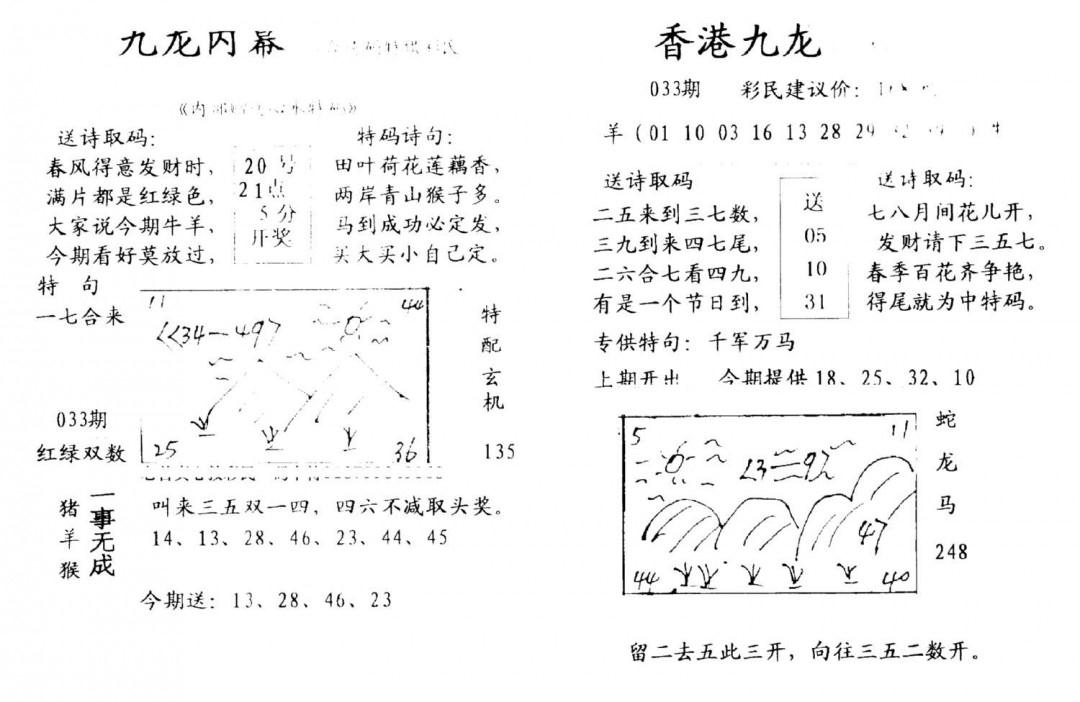 九龙内幕
送诗取码:
春风得意发财时,
满片都是红绿色,
大家说今期牛羊,
今期看好莫放过,
20号
21点
5分
开奖
特码诗句:
田叶荷花莲藕香,
两岸青山猴子多。
马到成功必定发,
买大买小自己定。
特 句
一七合来
033期
红绿双数
11
44
25
36
特配玄机
135
猪羊猴
一事无成
叫来三五双一四, 四六不减取头奖。
14、13、28、46、23、44、45
今期送: 13、28、46、23
香港九龙
033期 彩民建议价:
羊 (01 10 03 16 13 28 29
送诗取码
二五来到三七数,
三九到来四七尾,
二六合七看四九,
有是一个节日到,
送
05
10
31
送诗取码:
七八月间花儿开,
发财请下三五七。
春季百花齐争艳,
得尾就为中特码。
专供特句: 千军万马
上期开出 今期提供18、25、32、10
5
11
47
44
40
蛇
龙
马
248
留二去五此三开, 向往三五二数开。